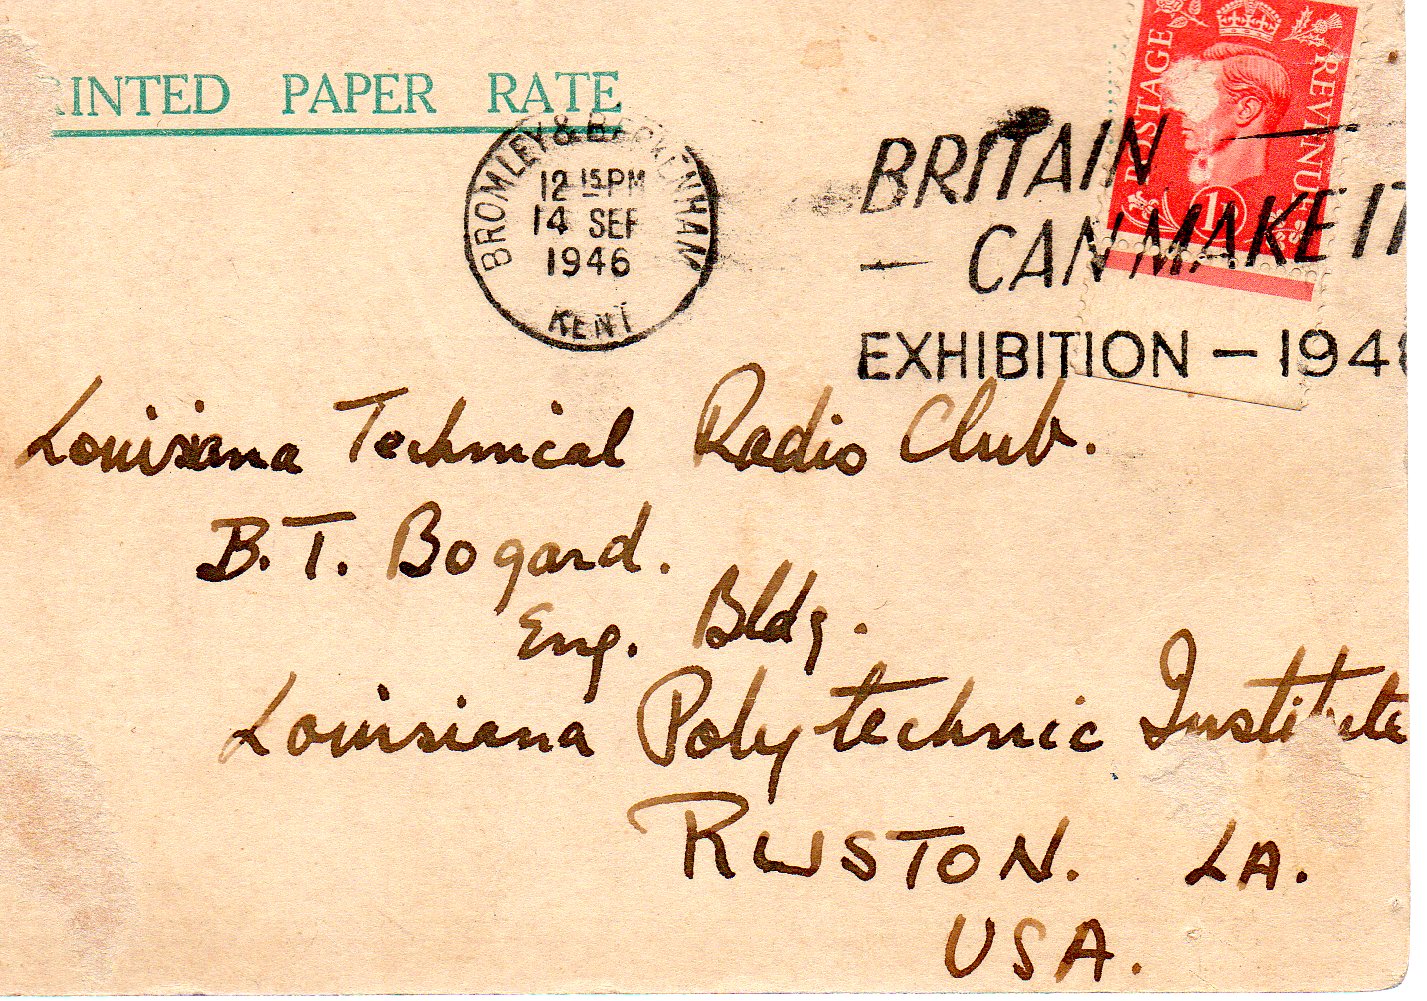 RINTED PAPER RATE
BROMLEY & BECKENHAM
12 15 PM
14 SEP
1946
KENT
POSTAGE
REVENUE
1D
BRITAIN
CAN MAKE IT
EXHIBITION — 1946
Louisiana Technical Radio Club.
B.T. Bogard.
Eng. Bldg.
Louisiana Polytechnic Institute
RUSTON. LA.
USA.